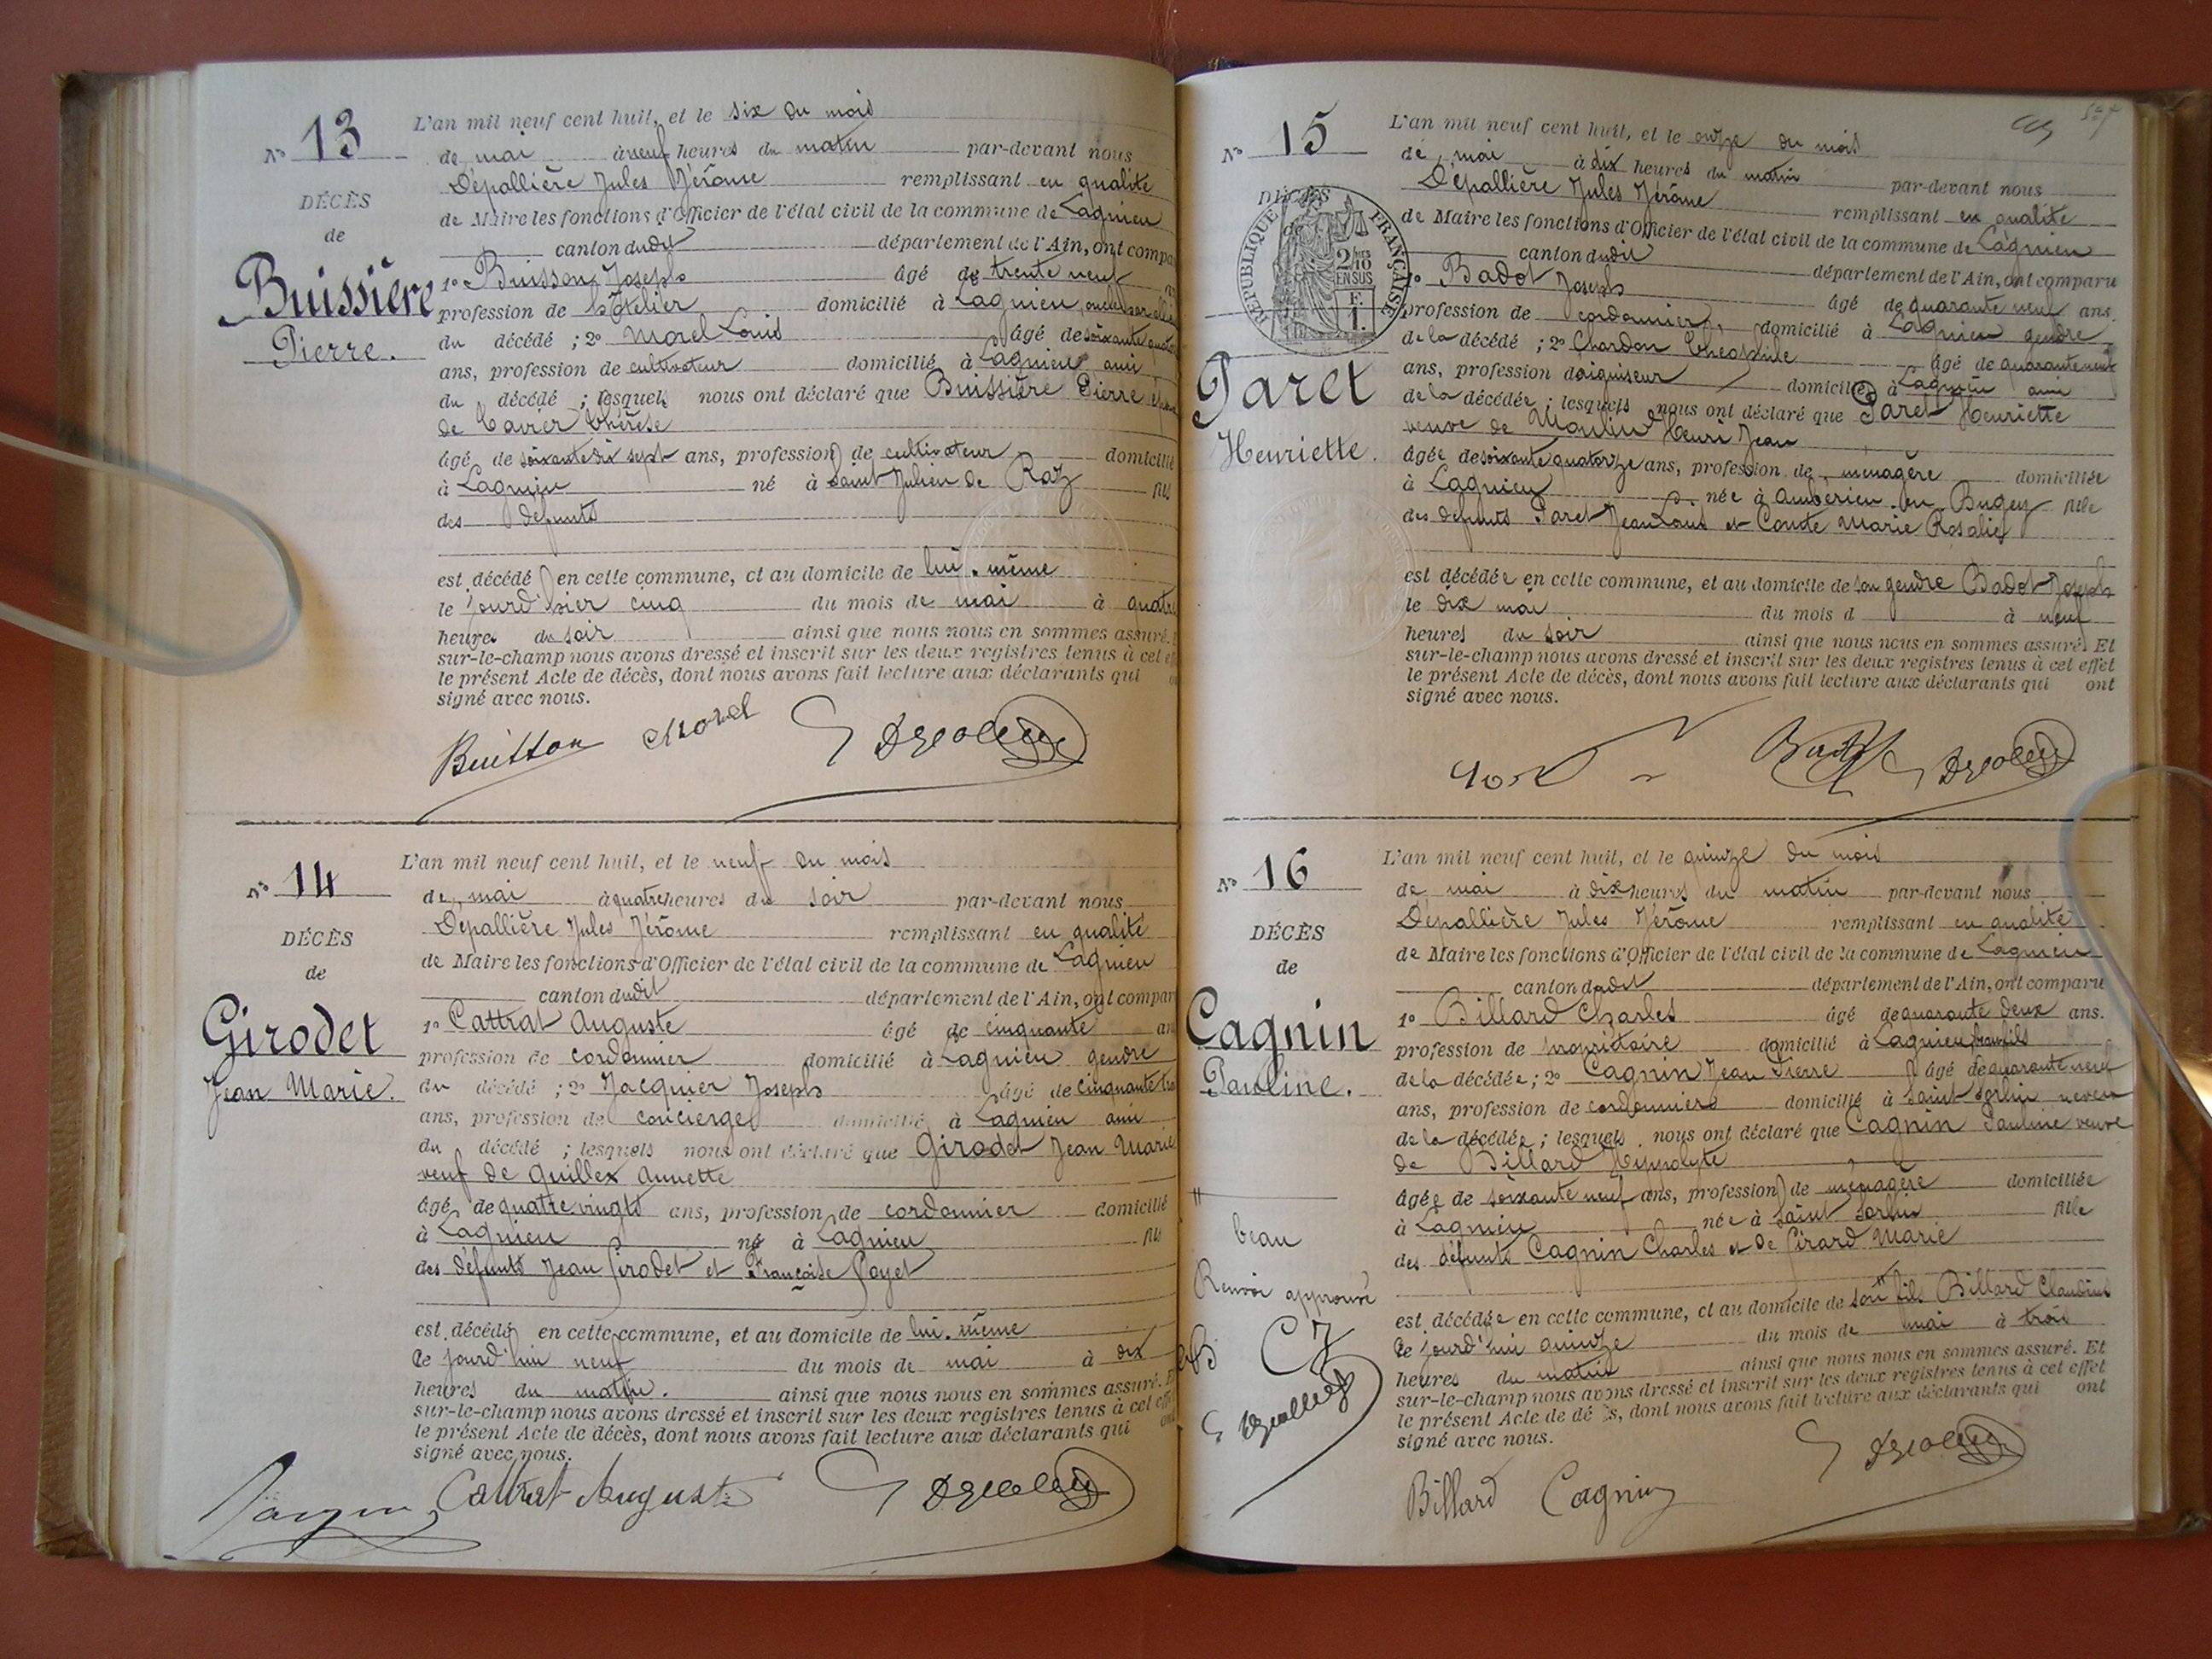 N° 13
DÉCÈS
de
Buissière
Pierre.
L'an mil neuf cent huit, et le six du mois
de mai à neuf heures du matin par-devant nous
Dépallière Jules Jérôme remplissant en qualité
de Maire les fonctions d'Officier de l'état civil de la commune de Lagnieu
canton dudit département de l'Ain, ont compa
1° Buisson Joseph âgé de trente neuf
profession de hôtelier domicilié à Lagnieu
du décédé ; 2° Morel Louis âgé de soixante quator
ans, profession de cultivateur domicilié à Lagnieu ami
du décédé ; lesquels nous ont déclaré que Buissière Pierre
de Cavier Thérèse
âgé de soixante dix sept ans, profession de cultivateur domicilié
à Lagnieu né à Saint Julien de Raz fils
des défunts
est décédé en cette commune, et au domicile de lui-même
le jourd'hier cinq du mois de mai à quatre
heures du soir ainsi que nous nous en sommes assuré.
sur-le-champ nous avons dressé et inscrit sur les deux registres tenus à cet ef
le présent Acte de décès, dont nous avons fait lecture aux déclarants qui
signé avec nous.
Buisson Morel
N° 14
DÉCÈS
de
Girodet
Jean Marie.
L'an mil neuf cent huit, et le neuf du mois
de mai à quatre heures du soir par-devant nous
Dépallière Jules Jérôme remplissant en qualité
de Maire les fonctions d'Officier de l'état civil de la commune de Lagnieu
canton dudit département de l'Ain, ont compar
1° Cattrat Auguste âgé de cinquante an
profession de cordonnier domicilié à Lagnieu gendre
du décédé ; 2° Jacquier Joseph âgé de cinquante tro
ans, profession de concierge domicilié à Lagnieu ami
du décédé ; lesquels nous ont déclaré que Girodet Jean Marie
veuf de Quillex Annette
âgé de quatre vingts ans, profession de cordonnier domicilié
à Lagnieu né à Lagnieu fils
des défunts Jean Girodet et Françoise Payet
est décédé en cette commune, et au domicile de lui-même
le jourd'hui neuf du mois de mai à dix
heures du matin. ainsi que nous nous en sommes assuré. E
sur-le-champ nous avons dressé et inscrit sur les deux registres tenus à cet eff
le présent Acte de décès, dont nous avons fait lecture aux déclarants qui
signé avec nous.
Cattrat Auguste
N° 15
DÉCÈS
RÉPUBLIQUE FRANÇAISE
2/10
EN SUS
F.
1.
Paret
Henriette.
L'an mil neuf cent huit, et le onze du mois
de mai à dix heures du matin par-devant nous
Dépallière Jules Jérôme remplissant en qualité
de Maire les fonctions d'Officier de l'état civil de la commune de Lagnieu
canton dudit département de l'Ain, ont comparu
1° Badot Joseph âgé de quarante neuf ans.
profession de cordonnier, domicilié à Lagnieu gendre
de la décédé ; 2° Chardon Théophile âgé de quarante neuf
ans, profession d'aiguiseur domicilié à Lagnieu ami
de la décédée ; lesquels nous ont déclaré que Paret Henriette
veuve de Moulin Henri Jean
âgée de soixante quatorze ans, profession de ménagère domiciliée
à Lagnieu née à Ambérieu en Bugey fille
des défunts Paret Jean Louis et Conte Marie Rosalie
est décédée en cette commune, et au domicile de son gendre Badot Joseph
le dix mai du mois d à neuf
heures du soir ainsi que nous nous en sommes assuré. Et
sur-le-champ nous avons dressé et inscrit sur les deux registres tenus à cet effet
le présent Acte de décès, dont nous avons fait lecture aux déclarants qui ont
signé avec nous.
N° 16
DÉCÈS
de
Cagnin
Pauline.
L'an mil neuf cent huit, et le quinze du mois
de mai à dix heures du matin par-devant nous
Dépallière Jules Jérôme remplissant en qualité
de Maire les fonctions d'Officier de l'état civil de la commune de Lagnieu
canton dudit département de l'Ain, ont comparu
1° Billard Charles âgé de quarante deux ans.
profession de propriétaire domicilié à Lagnieu beau fils
de la décédée ; 2° Cagnin Jean Pierre âgé de quarante neuf
ans, profession de cordonnier domicilié à Saint Sorlin neveu
de la décédée ; lesquels nous ont déclaré que Cagnin Pauline veuve
de Billard Hyppolyte
âgée de soixante neuf ans, profession de ménagère domiciliée
à Lagnieu née à Saint Sorlin fille
des défunts Cagnin Charles et de Girard Marie
est décédée en cette commune, et au domicile de son fils Billard Claudius
le jourd'hui quinze du mois de mai à trois
heures du matin ainsi que nous nous en sommes assuré. Et
sur-le-champ nous avons dressé et inscrit sur les deux registres tenus à cet effet
le présent Acte de décès, dont nous avons fait lecture aux déclarants qui ont
signé avec nous.
beau
Renvoi approuvé
Billard Cagnin